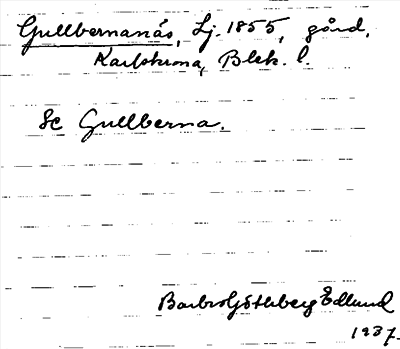 Gullbernanäs, Lj. 1855, gård,
Karlskrona, Blek. l.
Se Gullberna.
Barbro Göthberg Edlund
1937.